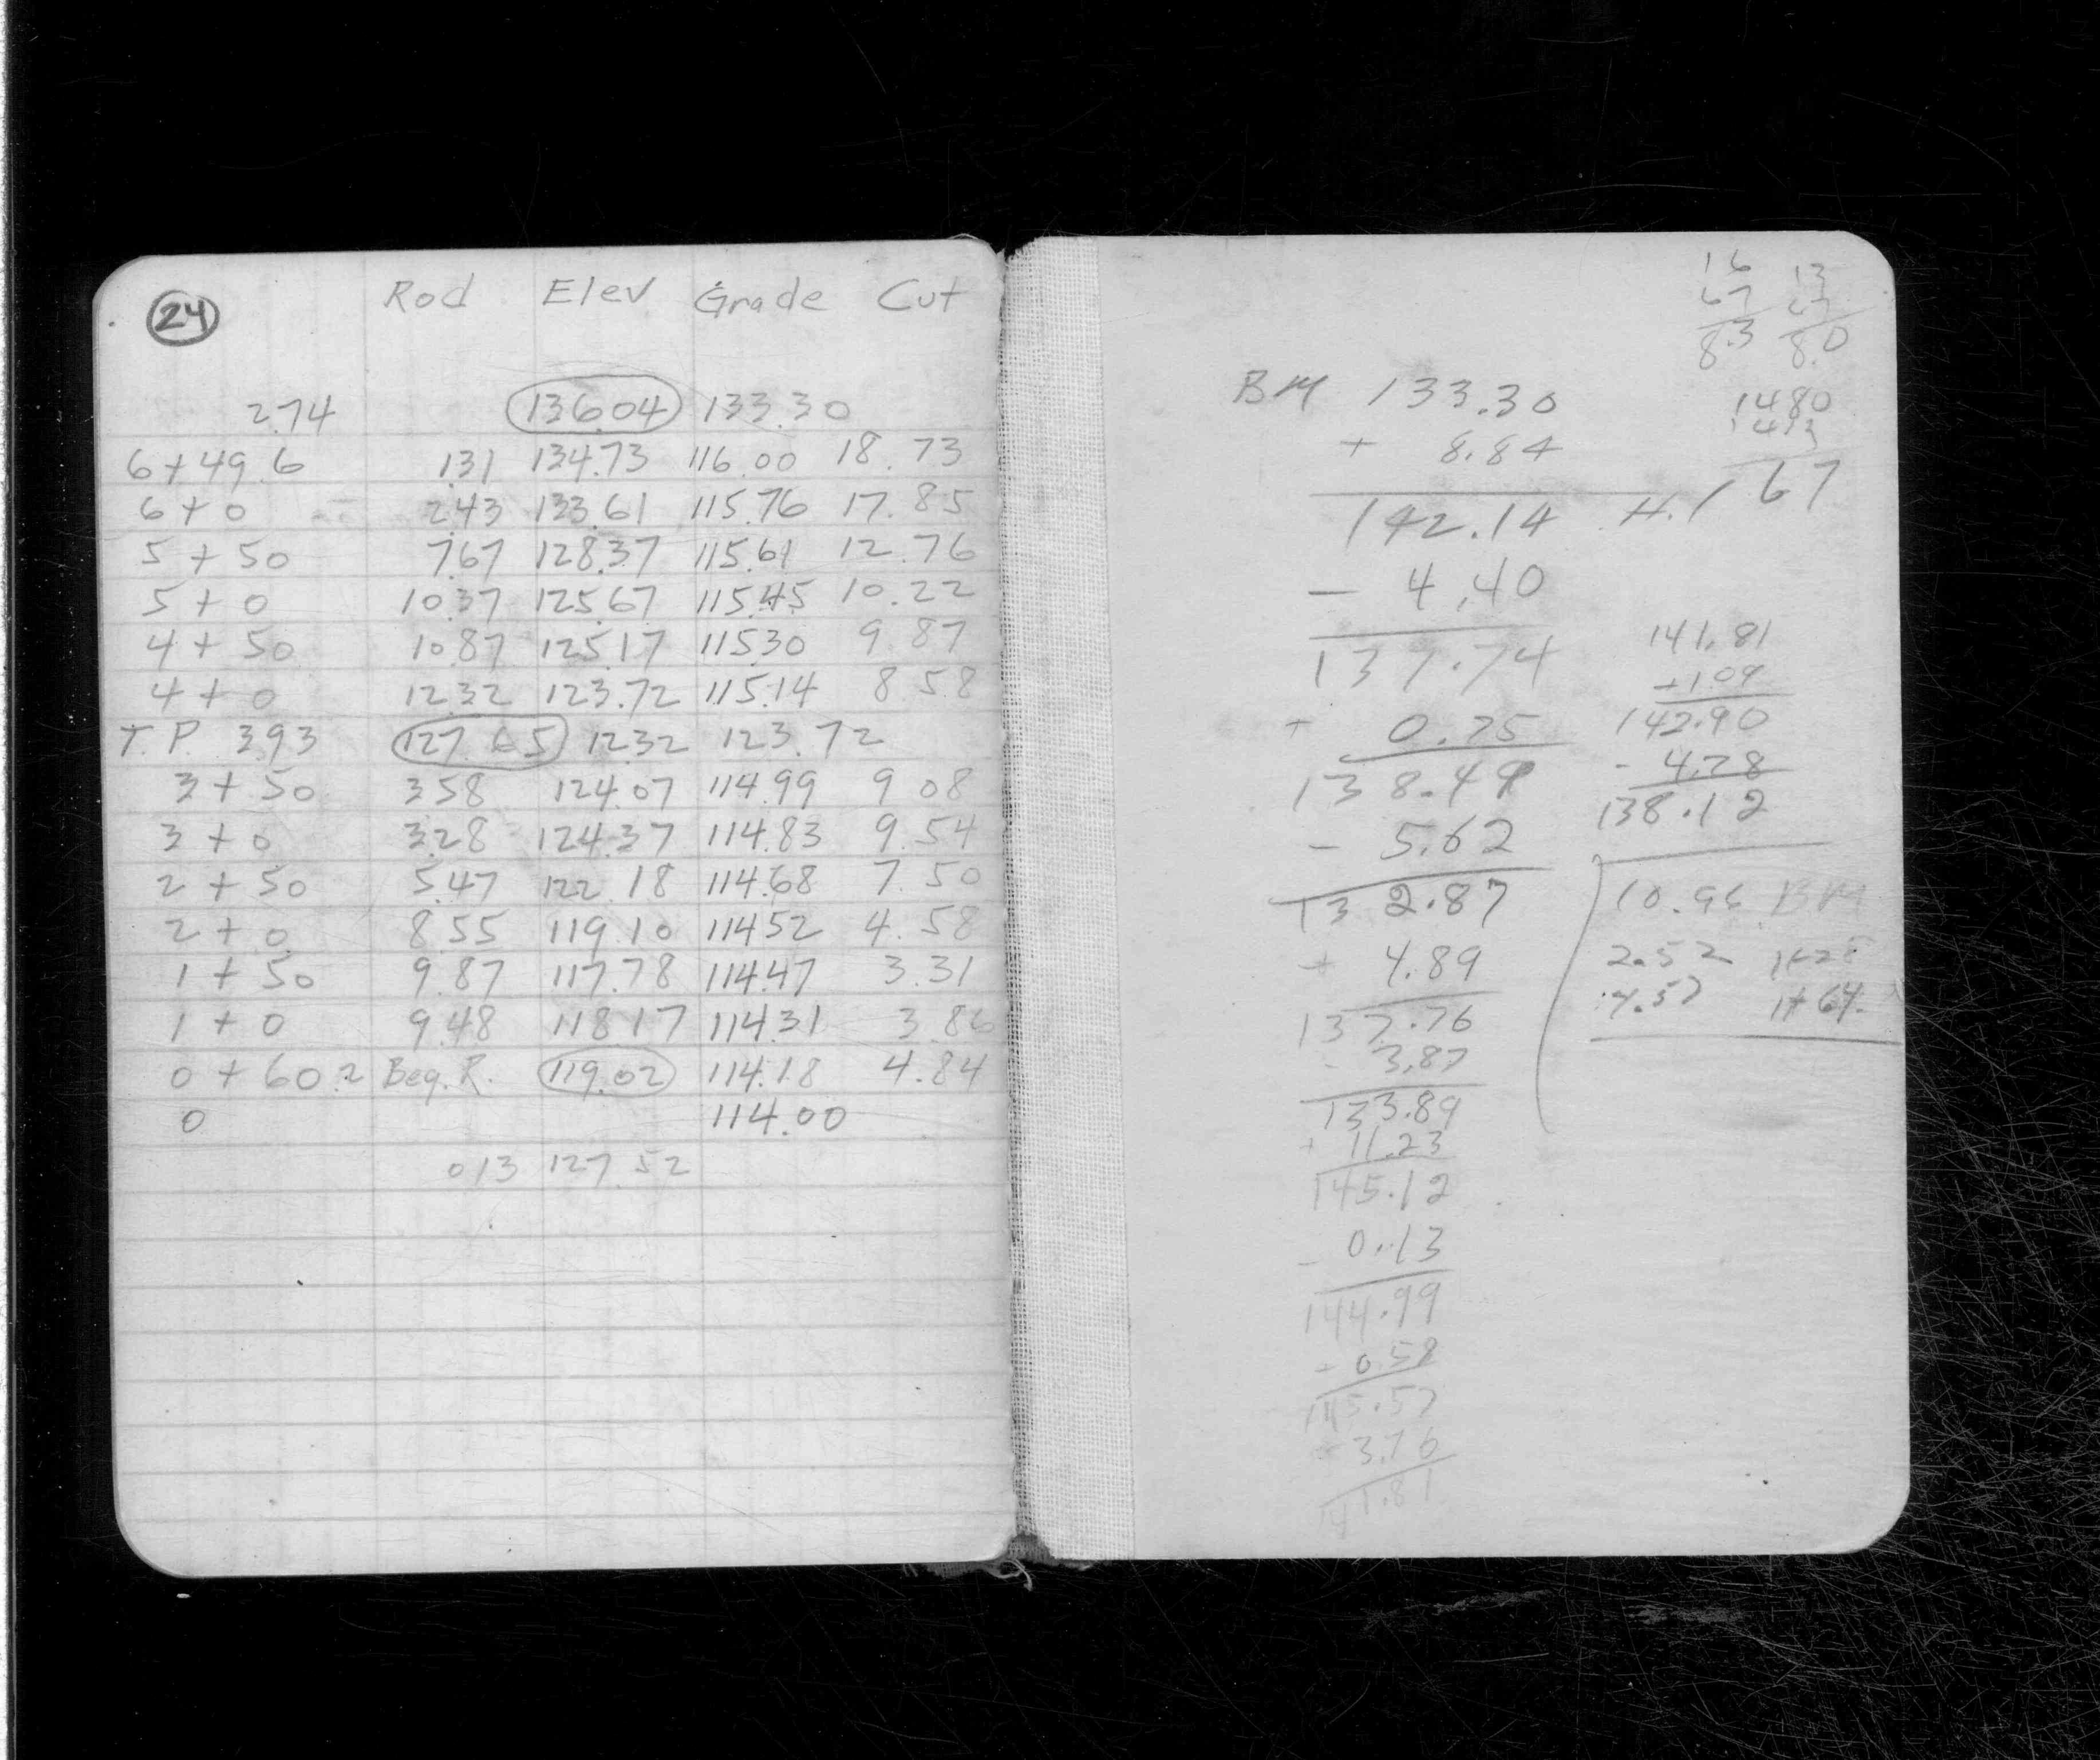 24 Rod Elev Grade Cut
2.74 136.04 133.30
6+49.6 1.31 134.73 116.00 18.73
6+0 2.43 133.61 115.76 17.85
5+50 7.67 128.37 115.61 12.76
5+0 10.37 125.67 115.45 10.22
4+50 10.87 125.17 115.30 9.87
4+0 12.32 123.72 115.14 8.58
T.P. 3.93 127.65 12.32 123.72
3+50 3.58 124.07 114.99 9.08
3+0 3.28 124.37 114.83 9.54
2+50 5.47 122.18 114.68 7.50
2+0 8.55 119.10 114.52 4.58
1+50 9.87 117.78 114.47 3.31
1+0 9.48 118.17 114.31 3.86
0+60.2 Beg. R. 119.02 114.18 4.84
0 114.00
0.13 127.52
16 13
67 67
8.3 8.0
BM 133.30
+ 8.84
142.14 H.I
- 4.40
137.74
+ 0.75
138.49
- 5.62
132.87
+ 4.89
137.76
- 3.87
133.89
+ 11.23
145.12
- 0.13
144.99
0.58
145.57
3.76
141.81
1480
1413
67
141.81
+1.09
142.90
- 4.78
138.12
10.96 BM
2.52
4.57 1+64